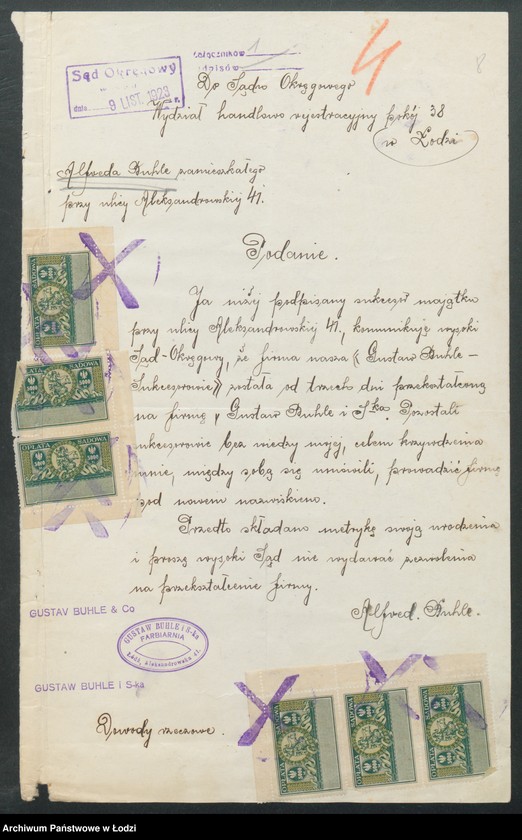 Sąd Okręgowy
dnia 9 LIST. 1923 r.
załączników 1
odpisów
4
8
Do Sądu Okręgowego
Wydział handlowo rejestracyjny pokój 38
w Łodzi
Alfreda Buhle zamieszkałego
przy ulicy Aleksandrowskiej 41.
Podanie.
Ja niżej podpisany sukcesor majątku
przy ulicy Aleksandrowskiej 41, komunikuję wysoki
Sąd-Okręgowy, że firma nasza „Gustaw Buhle-
Sukcesorowie” została od trzech dni przekształconą
na firmę „Gustaw Buhle i S-ka. Pozostali
sukcesorowie bez wiedzy mojej, celem krzywdzenia
mnie, między sobą się umówili, prowadzić firmę
pod nowem nazwiskiem.
Przedto składano metrykę swoją urodzenia
i proszę wysoki Sąd nie wydawać zezwolenia
na przekształcenie firmy.
Alfred. Buhle.
GUSTAV BUHLE & Co
GUSTAW BUHLE i S-ka
FARBIARNIA
Łódź, Aleksandrowska 41.
GUSTAW BUHLE i S-ka
Dowody rzeczowe.
OPŁATA SĄDOWA
OPŁATA SĄDOWA
OPŁATA SĄDOWA
OPŁATA SĄDOWA
OPŁATA SĄDOWA
OPŁATA SĄDOWA
Archiwum Państwowe w Łodzi